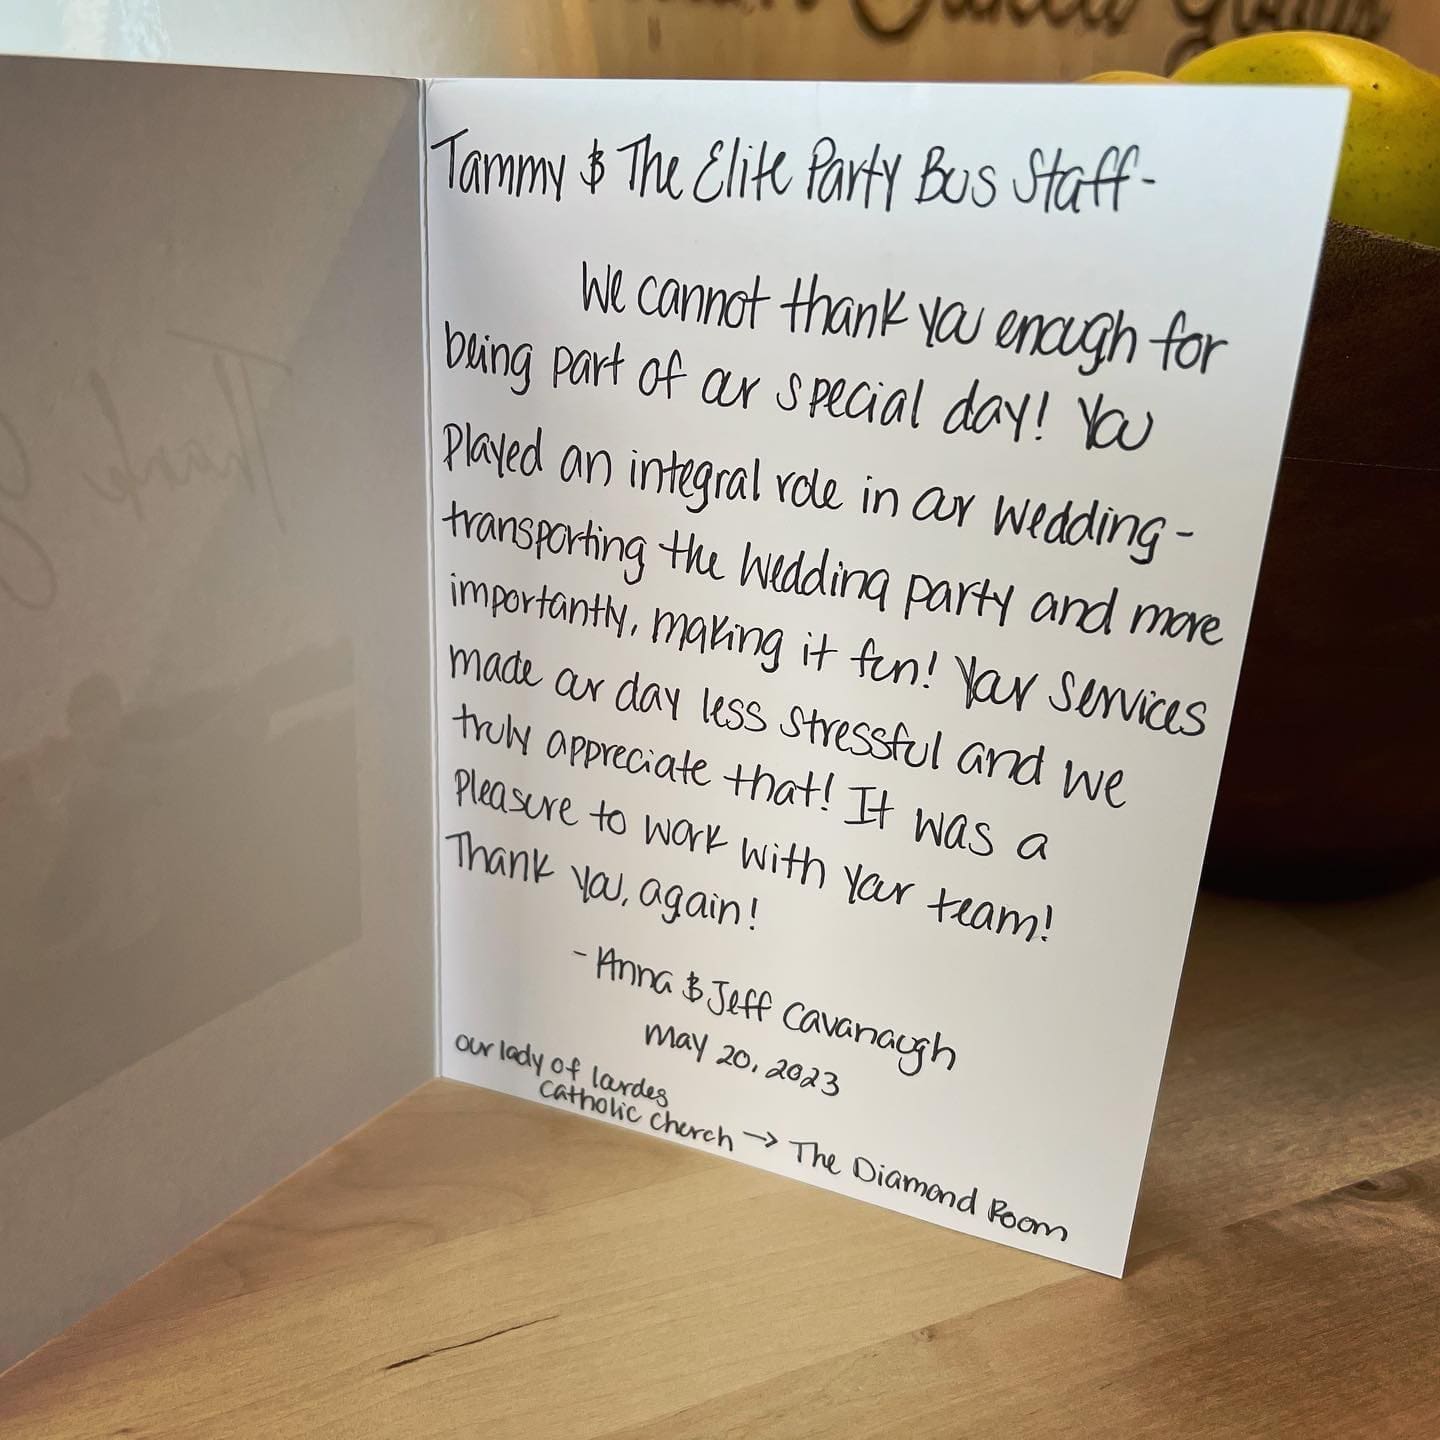 Tammy & The Elite Party Bus Staff-
We cannot thank you enough for
being part of our special day! You
played an integral role in our wedding-
transporting the wedding party and more
importantly, making it fun! Your services
made our day less stressful and we
truly appreciate that! It was a
pleasure to work with your team!
Thank you, again!
- Anna & Jeff Cavanaugh
May 20, 2023
our lady of lourdes
catholic church → The Diamond Room
Thank